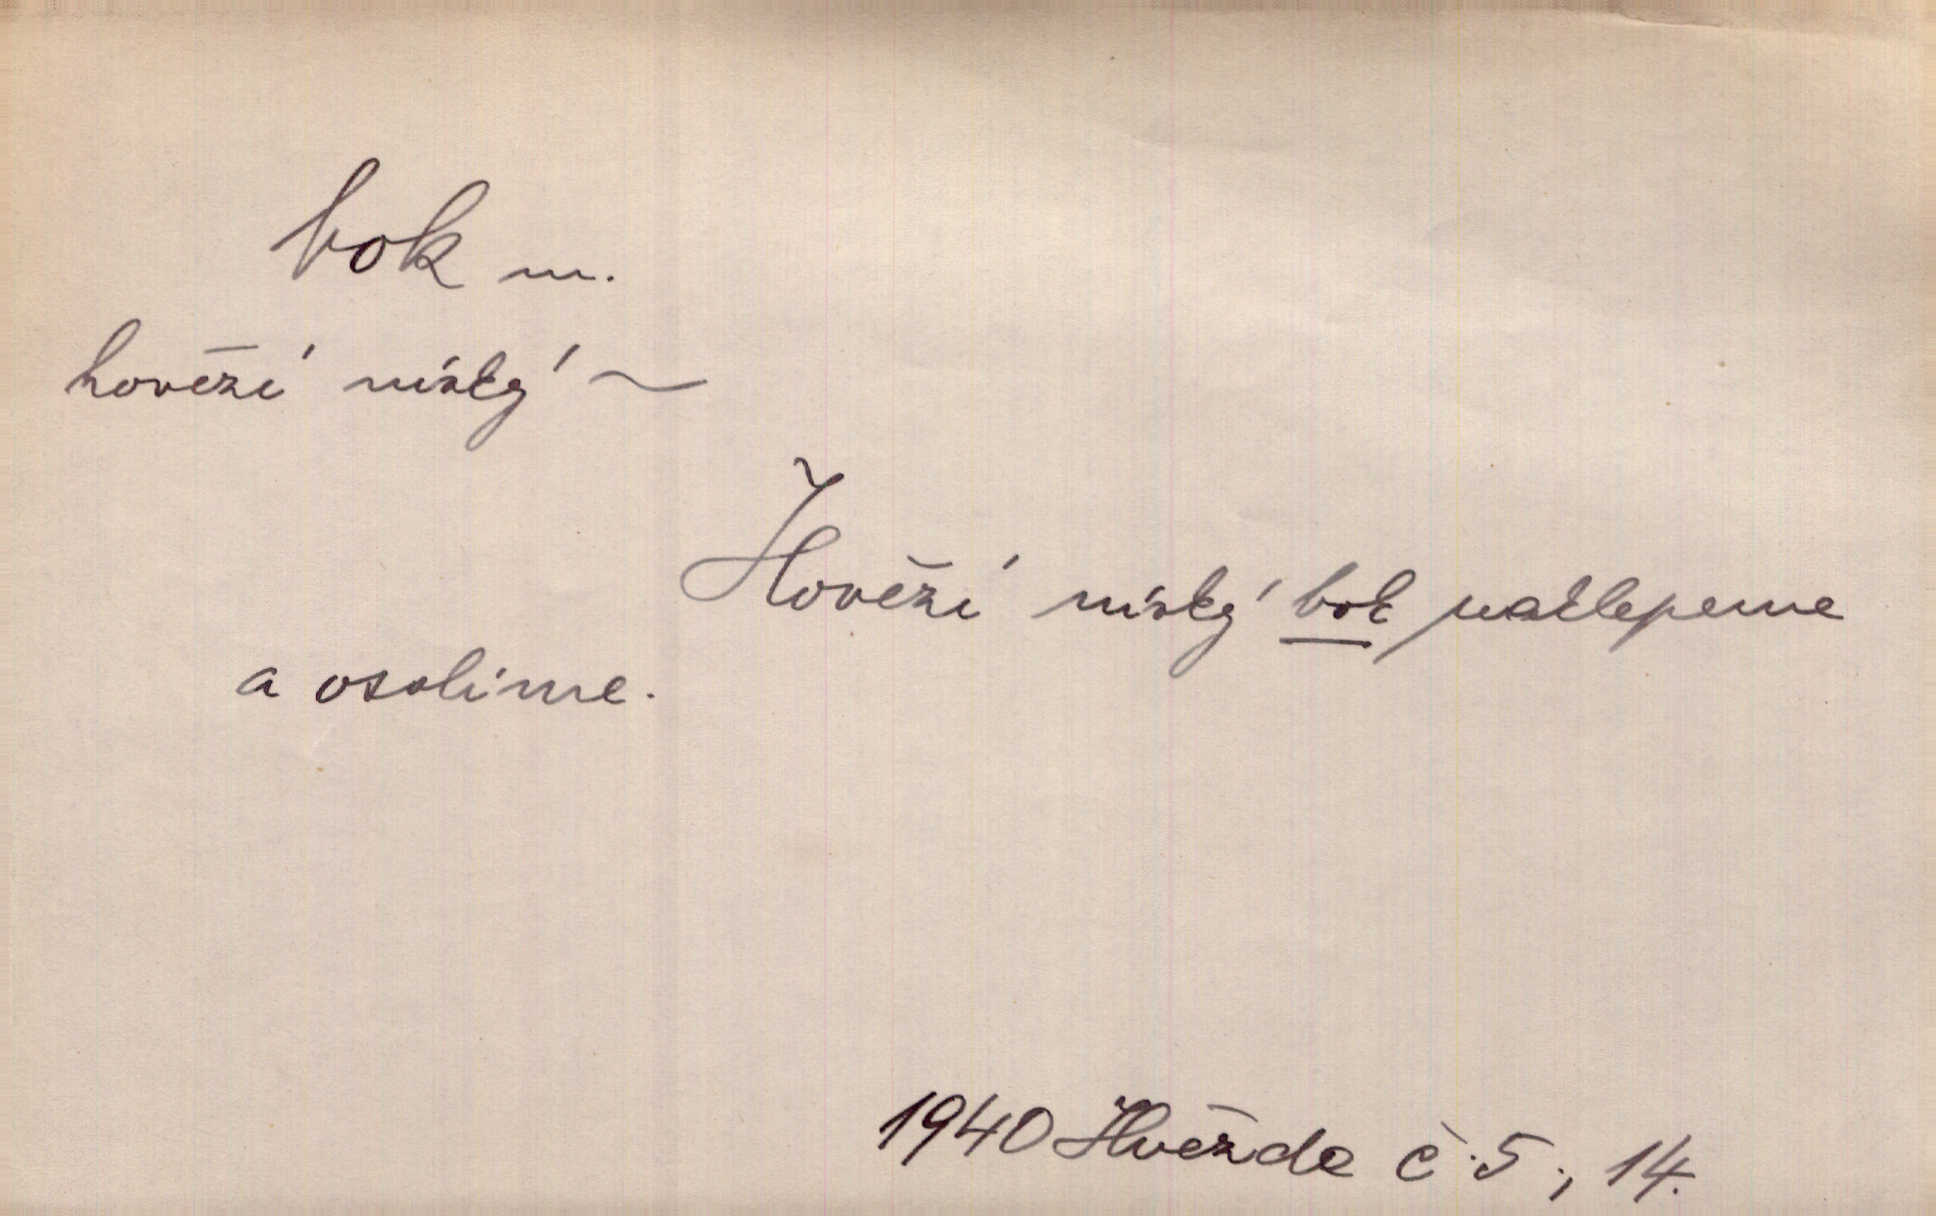 bok m.
hovězí nízký ~
Hovězí nízký bok naklepeme
a osolíme.
1940 Hvězda č. 5., 14.